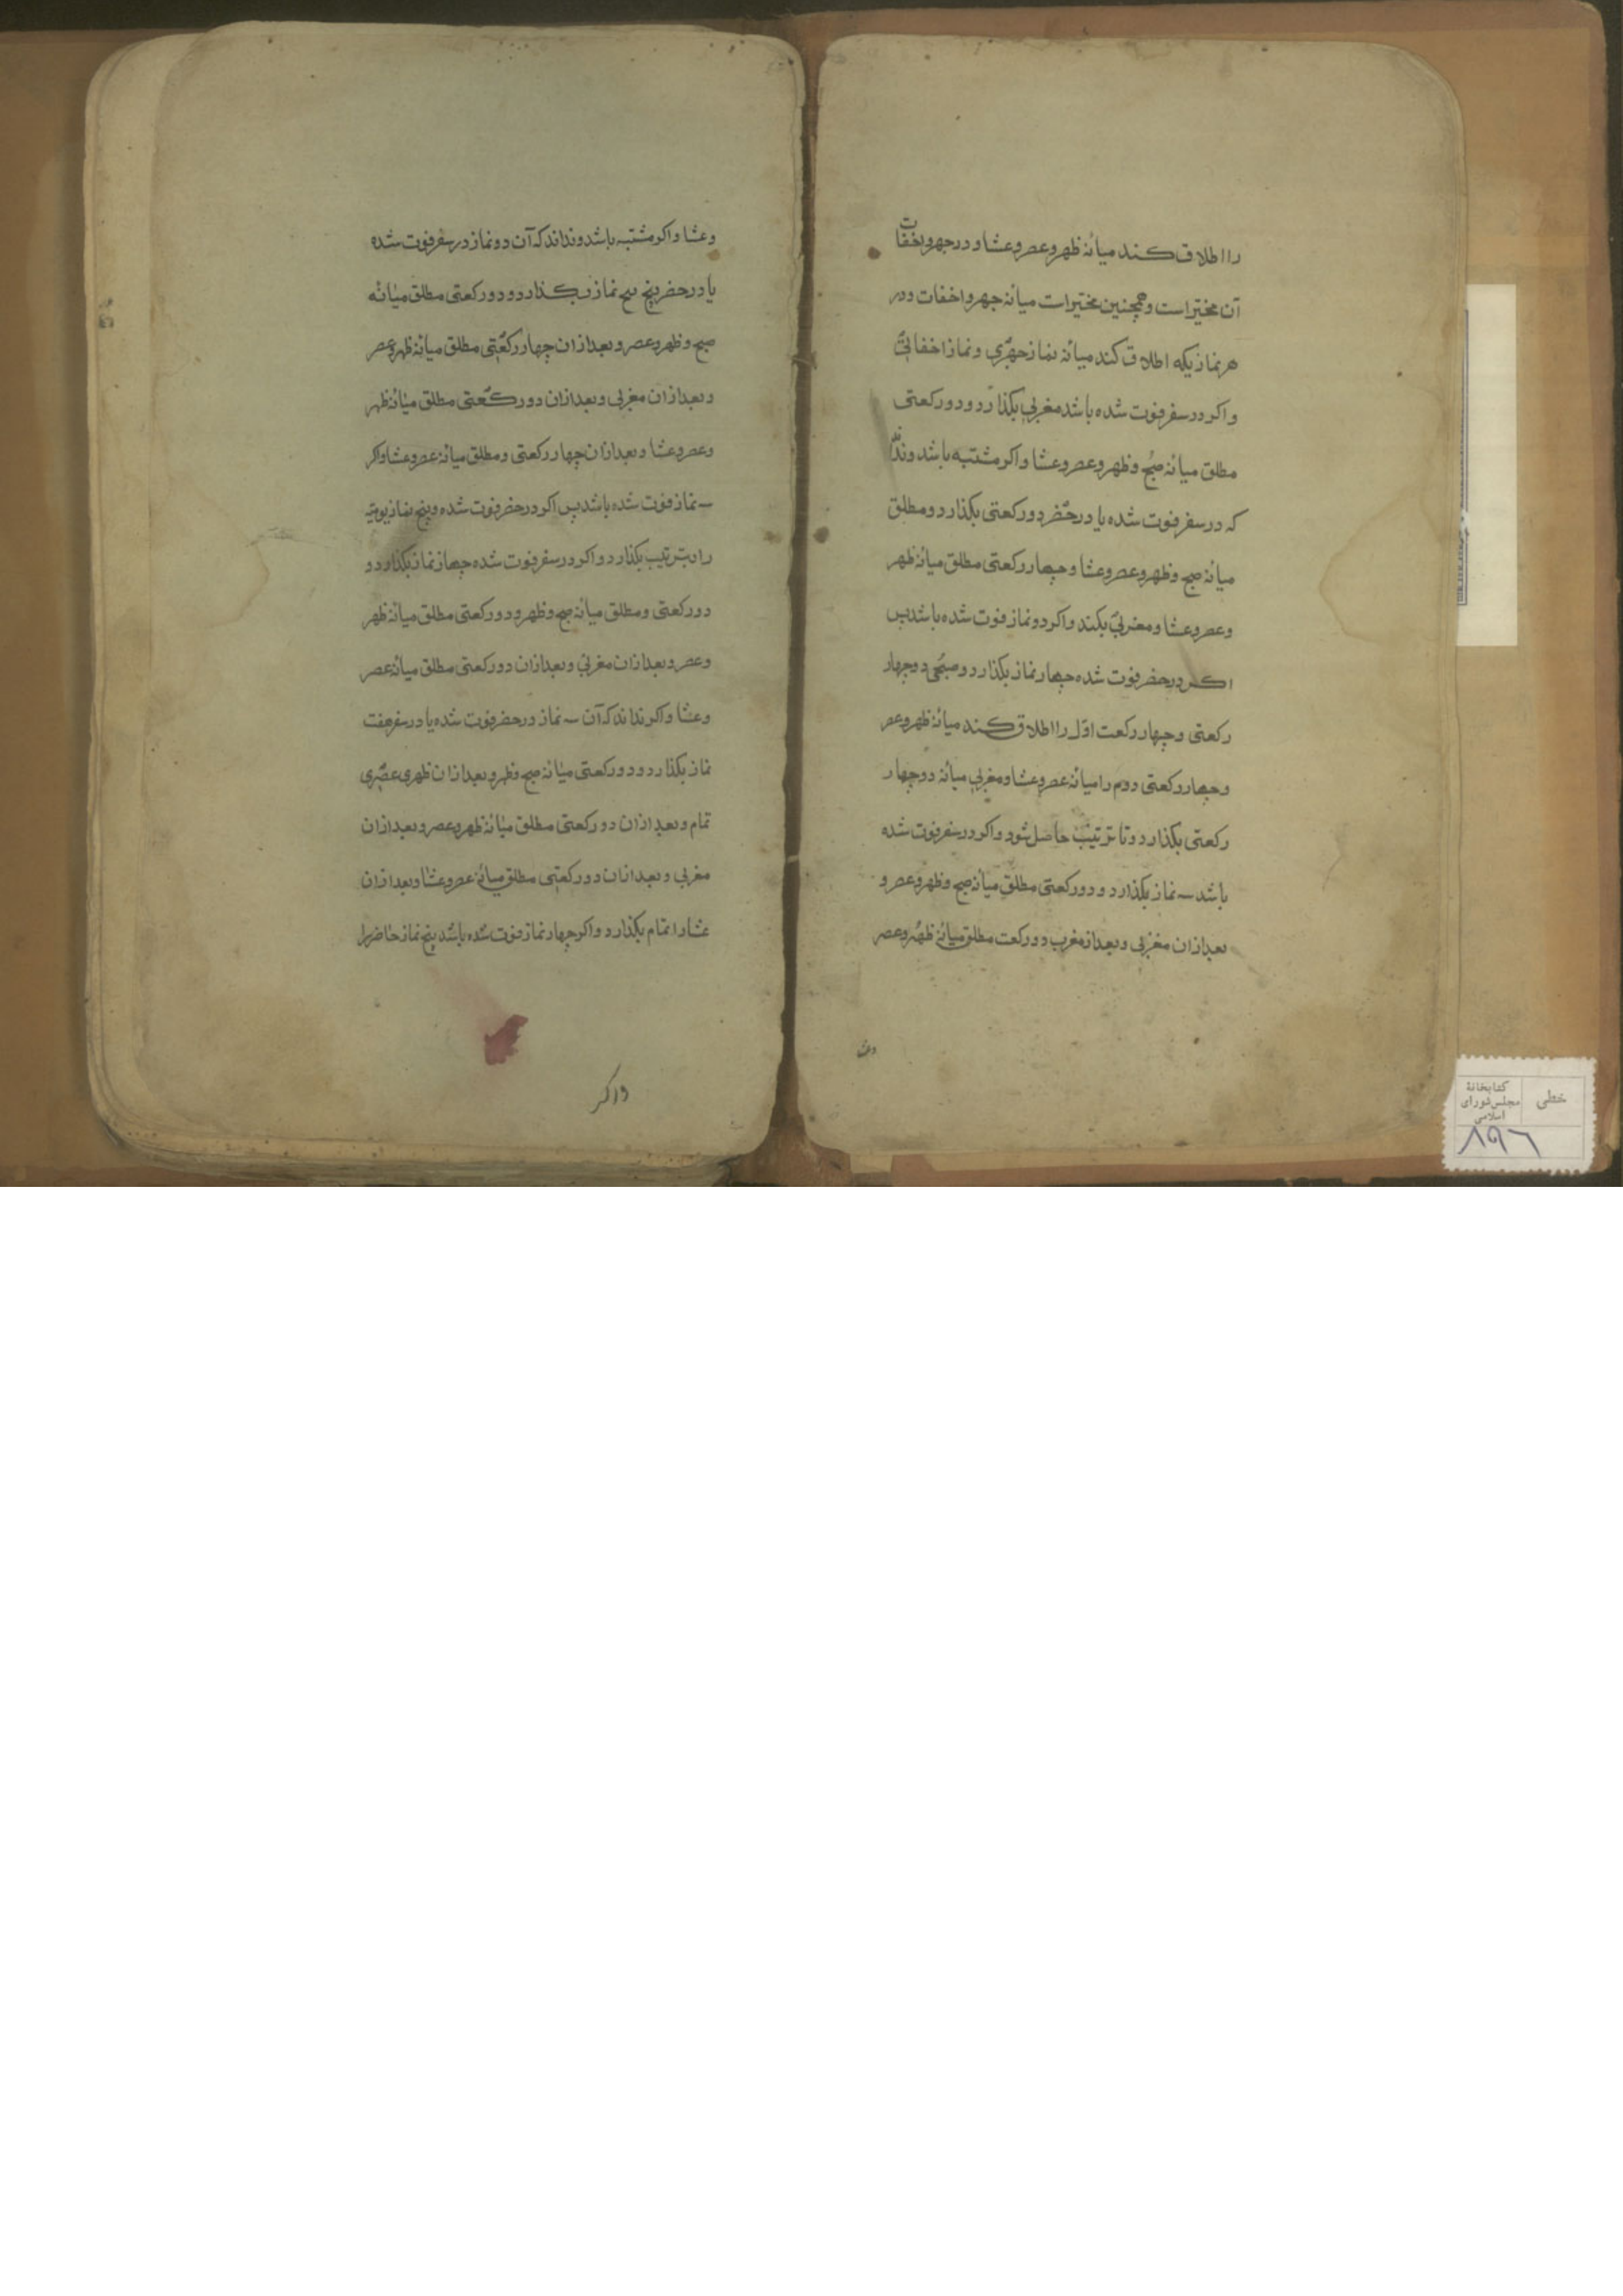 را اطلاق کند میانهٔ ظهر و عصر و عشا و در جهر و اخفات
آن مخیّر است و همچنین مخیّر است میانهٔ جهر و اخفات و در
هر نمازیکه اطلاق کند میانهٔ نماز جهری و نماز اخفاتی
و اکر در سفر فوت شده باشد مغربی بکذارد و دو رکعتی
مطلق میانهٔ صبح و ظهر و عصر و عشا و اکر مشتبه باشد و نداند
که در سفر فوت شده یا در حضر دو رکعتی بکذارد و مطلق
میانهٔ صبح و ظهر و عصر و عشا و چهار رکعتی مطلق میانهٔ ظهر
و عصر و عشا و مغربی بکند و اکر دو نماز فوت شده باشد پس
اکر در حضر فوت شده چهار نماز بکذارد و صبحی و دو چهار
رکعتی و چهار رکعت اوّل را اطلاق کند میانهٔ ظهر و عصر
و چهار رکعتی دوم را میانهٔ عصر و عشا و مغربی میانهٔ دو چهار
رکعتی بکذارد و تا ترتیب حاصل شود و اکر در سفر فوت شده
باشد سه نماز بکذارد و دو رکعتی مطلق میانهٔ صبح و ظهر و عصر و
بعد از ان مغربی و بعد از مغرب دو رکعت مطلق میانهٔ ظهر و عصر
وعشا
وعشا و اکر مشتبه باشد و نداند که آن دو نماز در سفر فوت شده
یا در حضر پنج نماز بکذارد و دو رکعتی مطلق میانهٔ
صبح و ظهر و عصر و بعد از ان چهار رکعتی مطلق میانهٔ ظهر و عصر
و بعد از ان مغربی و بعد از ان دو رکعتی مطلق میانهٔ ظهر
و عصر و عشا و بعد از ان چهار رکعتی و مطلق میانهٔ عصر و عشا و اکر
سه نماز فوت شده باشد پس اکر در حضر فوت شده و پنج نماز یومیّه
را بترتیب بکذارد و اکر در سفر فوت شده چهار نماز بکذارد و
دو رکعتی و مطلق میانهٔ صبح و ظهر و دو رکعتی مطلق میانهٔ ظهر
و عصر و بعد از ان مغربی و بعد از ان دو رکعتی مطلق میانهٔ عصر
و عشا و اکر نداند که آن سه نماز در حضر فوت شده یا در سفر هفت
نماز بکذارد و دو رکعتی میانهٔ صبح و ظهر و بعد از ان ظهری عصری
تمام و بعد از ان دو رکعتی مطلق میانهٔ ظهر و عصر و بعد از ان
مغربی و بعد از ان دو رکعتی مطلق میانهٔ عصر و عشا و بعد از ان
عشا را تمام بکذارد و اکر چهار نماز فوت شده باشد پنج نماز حاضر را
واکر
خطی
کتابخانهٔ
مجلس شورای
اسلامی